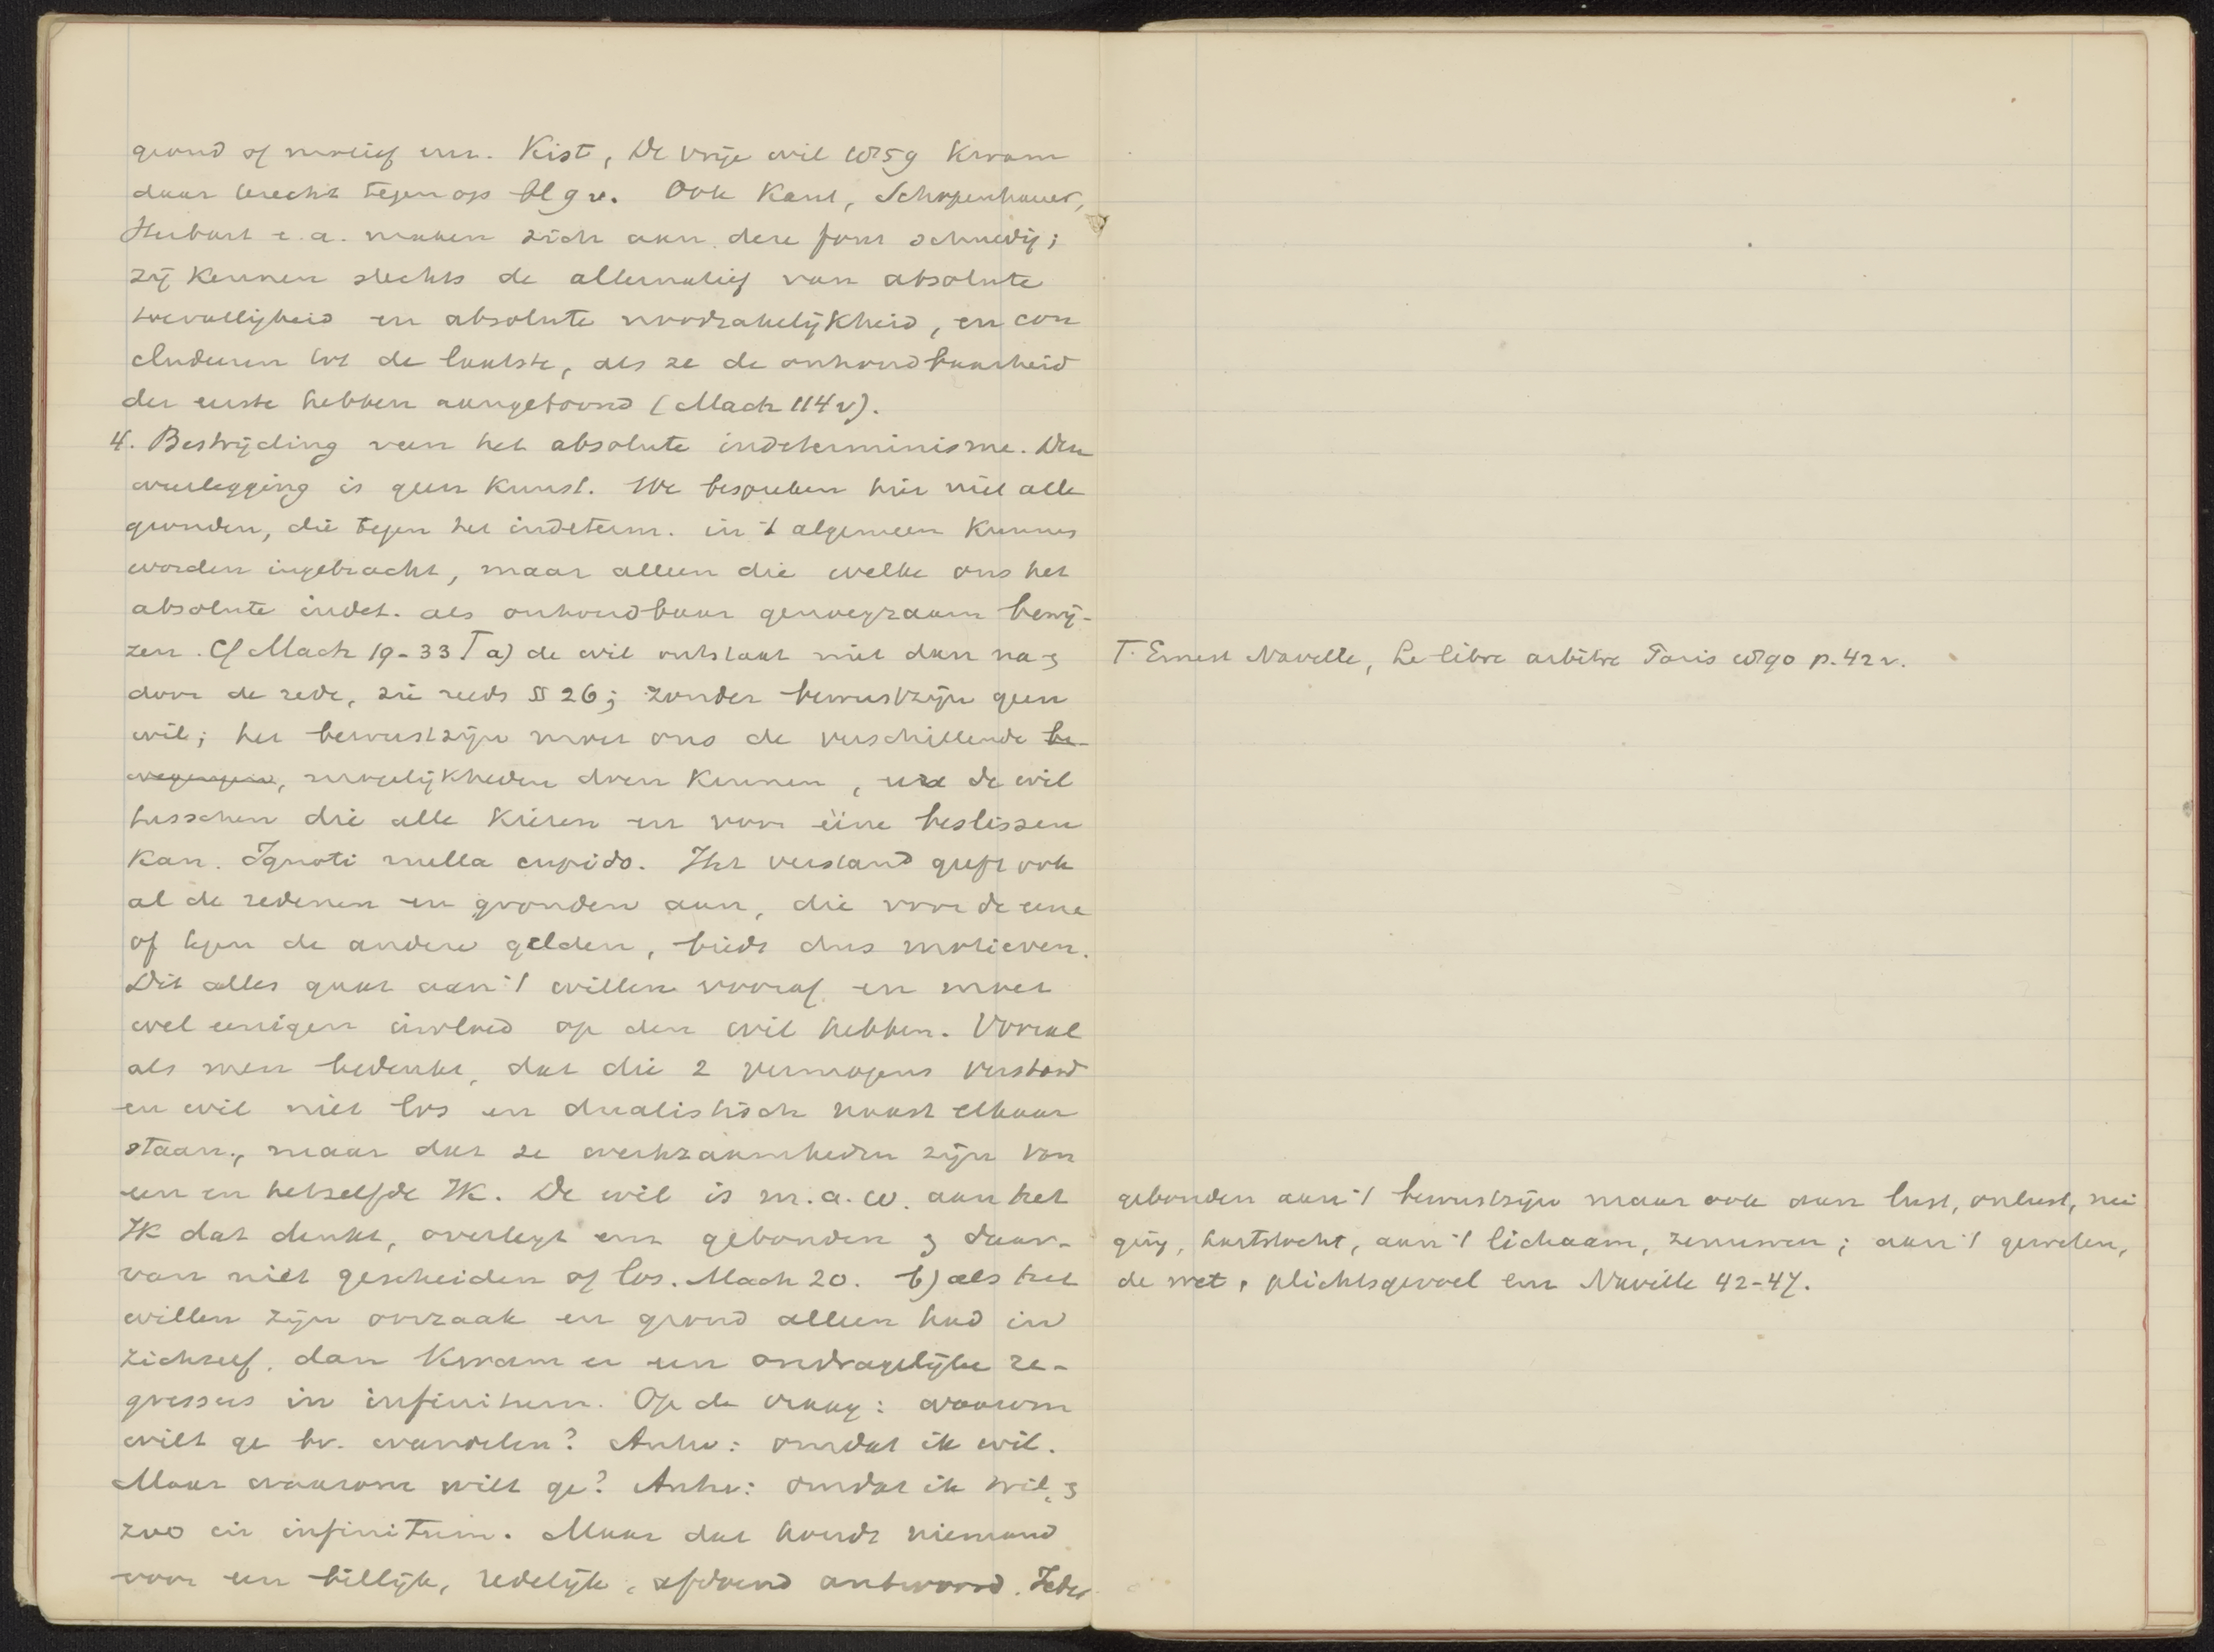 grond of motief enz. Kist, De vrije wil 1859 kwam
daar terecht tegen op blg v. Ook Kant, Schopenhauer,
Herbart e.a. maken zich aan deze fout schuldig;
zij kennen slechts de alternatief van absolute
toevalligheid en absolute noodzakelijkheid, en con
cluderen tot de laatste, als ze de onhoudbaarheid
der eerste hebben aangetoond (Mach 114 v).
4. Bestrijding van het absolute indeterminisme. Den
weerlegging is geen kunst. We bespreken hier niet alle
gronden, die tegen het indeterm. in 't algemeen kunnen
worden ingebracht, maar alleen die welke ons het
absolute indet. als onhoudbaar genoegzaam bewij-
zen. Cf Mach 19-33 T a) de wil ontstaat niet dan na &
door de rede, zie reeds § 26; zonder bewustzijn geen
wil; het bewustzijn moet ons de verschillende be-
wegingen, mogelijkheden doen kennen, uit de wil
tusschen die alle kiezen en voor ééne beslissen
kan. Ignoti nulla cupido. Het verstand geeft ook
al de redenen en gronden aan, die voor de eene
of tegen de andere gelden, biedt dus motieven.
Dit alles gaat aan 't willen vooraf en moet
wel eenigen invloed op den wil hebben. Vooral
als men bedenkt, dat die 2 vermogens verstand
en wil niet los en dualistisch naast elkaar
staan, maar dat ze werkzaamheden zijn van
een en hetzelfde Ik. De wil is m.a.w. aan het
Ik dat denkt, overlegt enz gebonden & daar-
van niet gescheiden of los. Mach 20. b) als het
willen zijn oorzaak en grond alleen had in
zichzelf, dan kwam er een ondragelijke re-
gressus in infinitum. Op de vraag: waarom
wilt ge bv. wandelen? Antw: omdat ik wil.
Maar waarom wilt ge? Antw: omdat ik wil, &
zoo in infinitum. Maar dat houdt niemand
voor een billijk, redelijk, afdoend antwoord. Ieder
T. Ernest Naville, Le libre arbitre Paris 1890 p. 42 v.
gebonden aan 't bewustzijn maar ook aan lust, onlust, nei
ging, hartstocht, aan 't lichaam, zenuwen; aan 't geweten,
de wet, plichtsgevoel enz Naville 42-47.